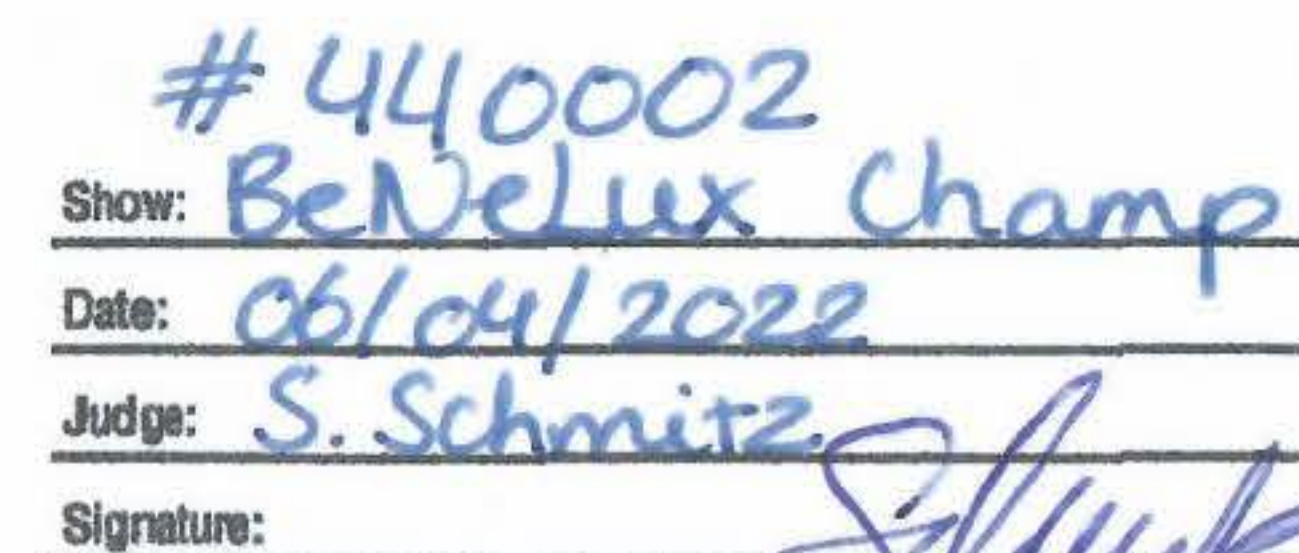 #440002
Show: BeNeLux Champ
Date: 06/04/2022
Judge: S. Schmitz
Signature: